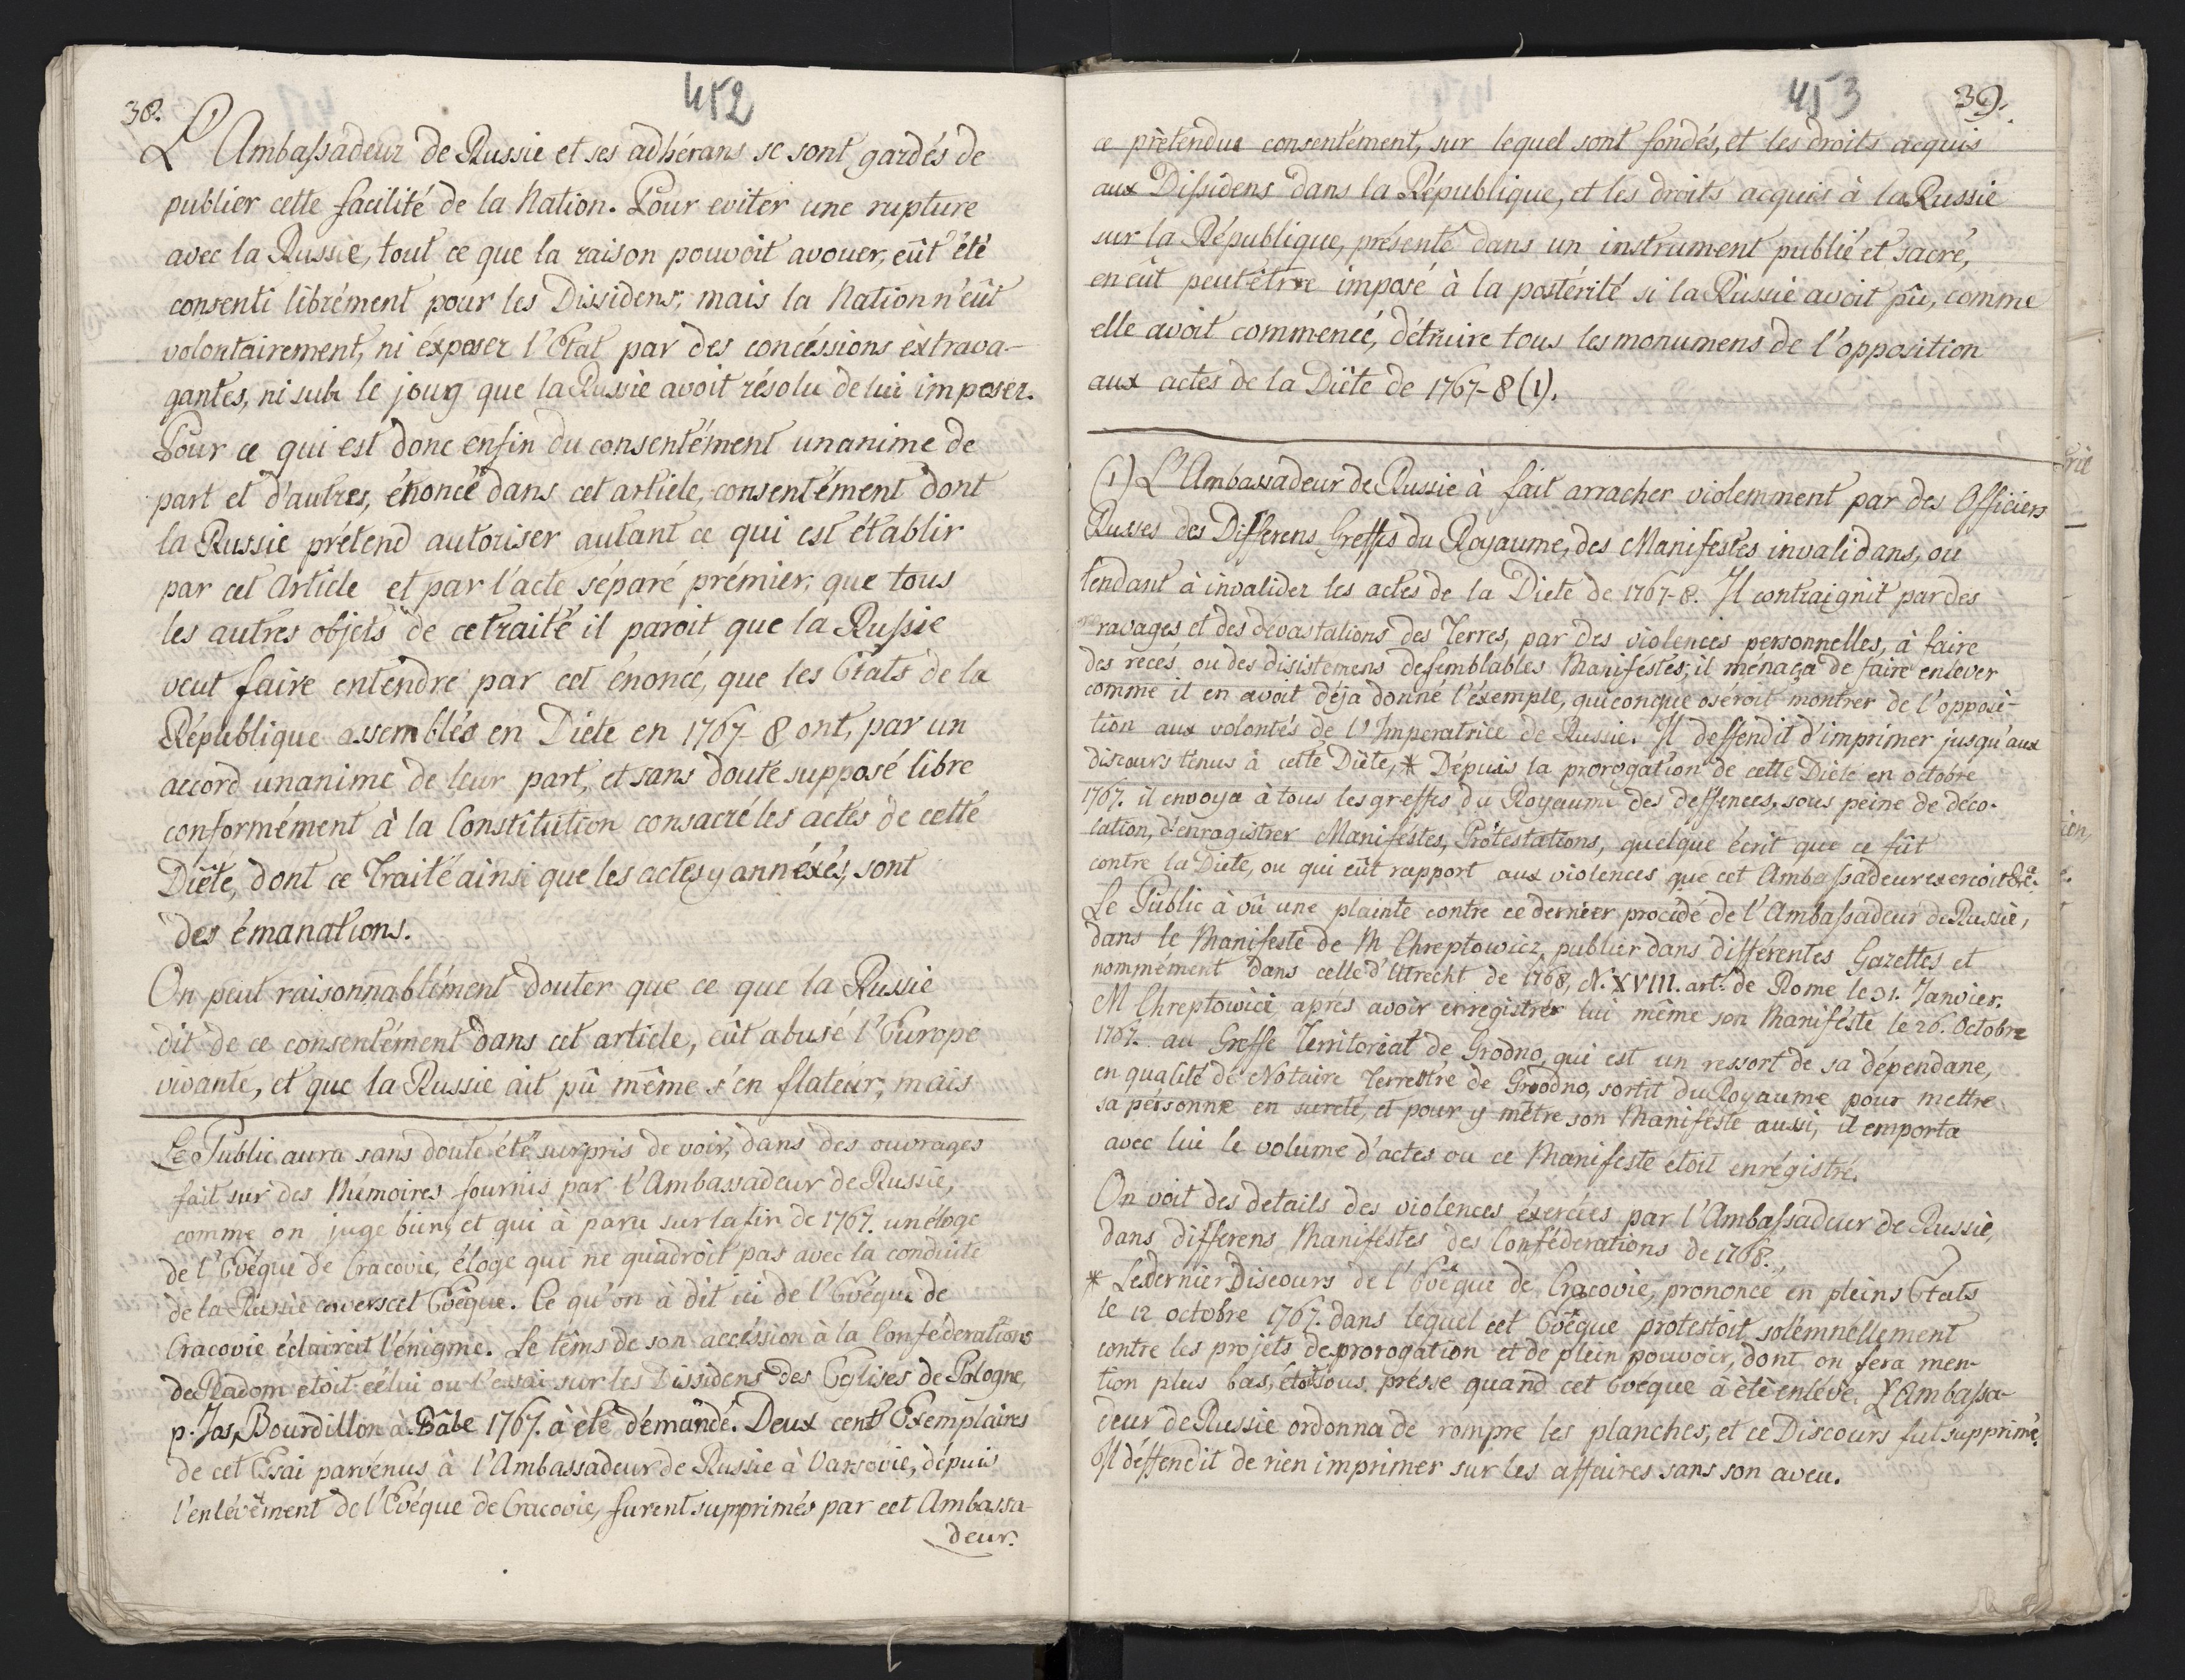 38.
452
L'Ambassadeur de Russie et ses adhérans se sont gardés de
publier cette facilité de la Nation. Pour eviter une rupture
avec la Russie, tout ce que la raison pouvoit avouer, eût été
consenti librément pour les Dissidens; mais la Nation n'eût
volontairement, ni éxposer l'Etat par des concéssions èxtrava-
gantes, ni subi le joug que la Russie avoit résolu de lui imposer.
Pour ce qui est donc enfin du consentément unanime de
part et d'autres, énoncé dans cet article, consentément dont
la Russie prétend autoriser autant ce qui est établir
par cet Article et par l'acte séparé prémier, que tous
les autres objets de ce traité il paroit que la Russie
veut faire entendre par cet énoncé, que les Etats de la
République assemblés en Diéte en 1767-8 ont, par un
accord unanime de leur part, et sans doute supposé libre
conformément à la Constitution consacré les actes de cette
Diéte, dont ce Traité ainsi que les actes y annéxés, sont
des émanations.
On peut raisonnablément douter que ce que la Russie
dit de ce consentément dans cet article, eût abusé l'Europe
vivante, et que la Russie ait pû même s'en flateur; mais
Le Public aura sans doute été surpris de voir, dans des ouvrages
fait sur des Mémoires fournis par l'Ambassadeur de Russie,
comme on juge bien, et qui à paru sur la fin de 1767. un éloge
de l'Evéque de Cracovie, éloge qui ne quadroit pas avec la conduite
de la Russie envers cet Evêque. Ce qu'on à dit ici de l'Evéque de
Cracovie éclaircit l'énigme. Le têms de son accéssion à la Conféderations
de Radom etoit célui ou l'essai sur les Dissidens des Eglises de Pologne,
p. Jos, Bourdillon à Bâle 1767. à été démandé. Deux cent Exemplaires
de cet Essai parvénus à l'Ambassadeur de Russie à Varsovie, dépuis
l'enlévément de l'Evéque de Cracovie, furent supprimés par cet Ambassa-
deur.
453
39.
ce prètendue consentément, sur lequel sont fondés, et les droits acquis
aux Dissidens dans la République, et les droits acquis à la Russie
sur la République, présenté dans un instrument publié et sacré,
en eût peut-être imposé à la postérité si la Russie avoit pû, comme
elle avoit commencé, détruire tous les monumens de l'opposition
aux actes de la Diéte de 1767-8 (1).
(1) L'Ambassadeur de Russie à fait arracher violemment par des Officiers
Russes des Differens Greffes du Royaume, des Manifestes invalidans, ou
tendant à invalider les actes de la Diete de 1767-8. Il contraignit par des
ravages et des dévastations des Terres, par des violences personnelles, à faire
des recés ou des disistemens de semblables Manifestes; il ménaça de faire enlever
comme il en avoit déja donné l'éxemple, quiconque oséroit montrer de l'opposi-
tion aux volontés de l'Imperatrice de Russie. Il deffendit d'imprimer jusqu'aux
discours tenus à cette Diéte, * Dépuis la prorogation de cette Diéte en octobre
1767. il envoya à tous les greffes du Royaume des deffences, sous peine de déco-
lation, d'enragistrer Manifestes, Protestations, quelque écrit que ce fût
contre la Diete, ou qui eût rapport aux violences que cet Ambassadeur exercoit &c.
Le Public à vû une plainte contre ce dernier procédé de l'Ambassadeur de Russie,
dans le Manifeste de M Chreptowicz, publier dans différentes Gazettes et
nommément dans celle d'Utrecht de 1768, N. XVIII. art. de Rome le 31. Janvier.
M Chreptowici apres avoir enregistrér lui même son Manifeste le 26. Octobre
1767. au Greffe Territorial de Grodno, qui est un ressort de sa dépendane,
en qualité de Notaire Terrestre de Grodno, sortit du Royaume pour mettre
sa pérsonne en sureté, et pour y mêtre son Manifeste aussi, il emporta
avec lui le volume d'actes ou ce Manifeste etoit enrégistré.
On voit des details des violences éxercées par l'Ambassadeur de Russie,
dans differens Manifestes des Conféderations de 1768.
* Le dernier Discours de l'Evêque de Cracovie, prononcé en pleins Etats
le 12 octobre 1767. dans lequel cet Evêque protestoit solémnellement
contre les projets de prorogation et de plein pouvoir, dont on fera men-
tion plus bas, étoit sous présse quand cet Evéque à été enlévé. L'Ambassa-
deur de Russie ordonna de rompre les planches, et ce Discours fut supprimé.
Il déffendit de rien imprimer sur les affaires sans son aveu.